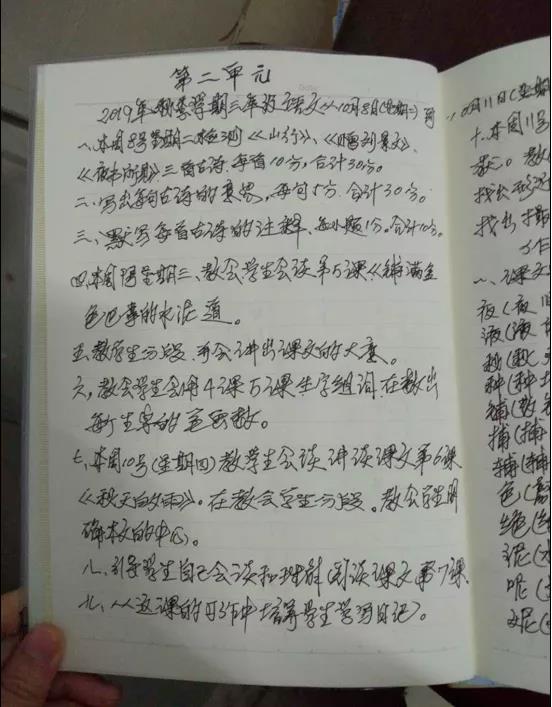 第二单元
2019年秋季学期三年级语文从10月8日(星期二)到
一、本周8号星期二检测《山行》、《赠刘景文》、
《夜书所见》三首古诗.每首10分,合计30分。
二、写出每句古诗的意思,每句5分.合计30分。
三、默写每首古诗的注释、每小题1分。合计10分。
四、本周9号星期三、教会学生会读第5课《铺满金
色巴掌的水泥道。
五、教学生分段.并会讲出课文的大意。
六,教会学生会用4课5课生字组词.在数出
每个生字的笔画数。
七、本周10号(星期四)教学生会读.讲读课文第6课
《秋天的雨》。在教会学生分段。教会学生明
确本文的中心。
八、引导学生自己会读和理解《略读课文第7课
九、从这课的习作中培养学生学写日记。
10月11日(星期
十、本周11号
找出
找出
一、课文
夜(夜
液(液
秒(秒
种(种
铺(
捕(捕
辅(辅
色(
绝(
泥(
呢(
妮(